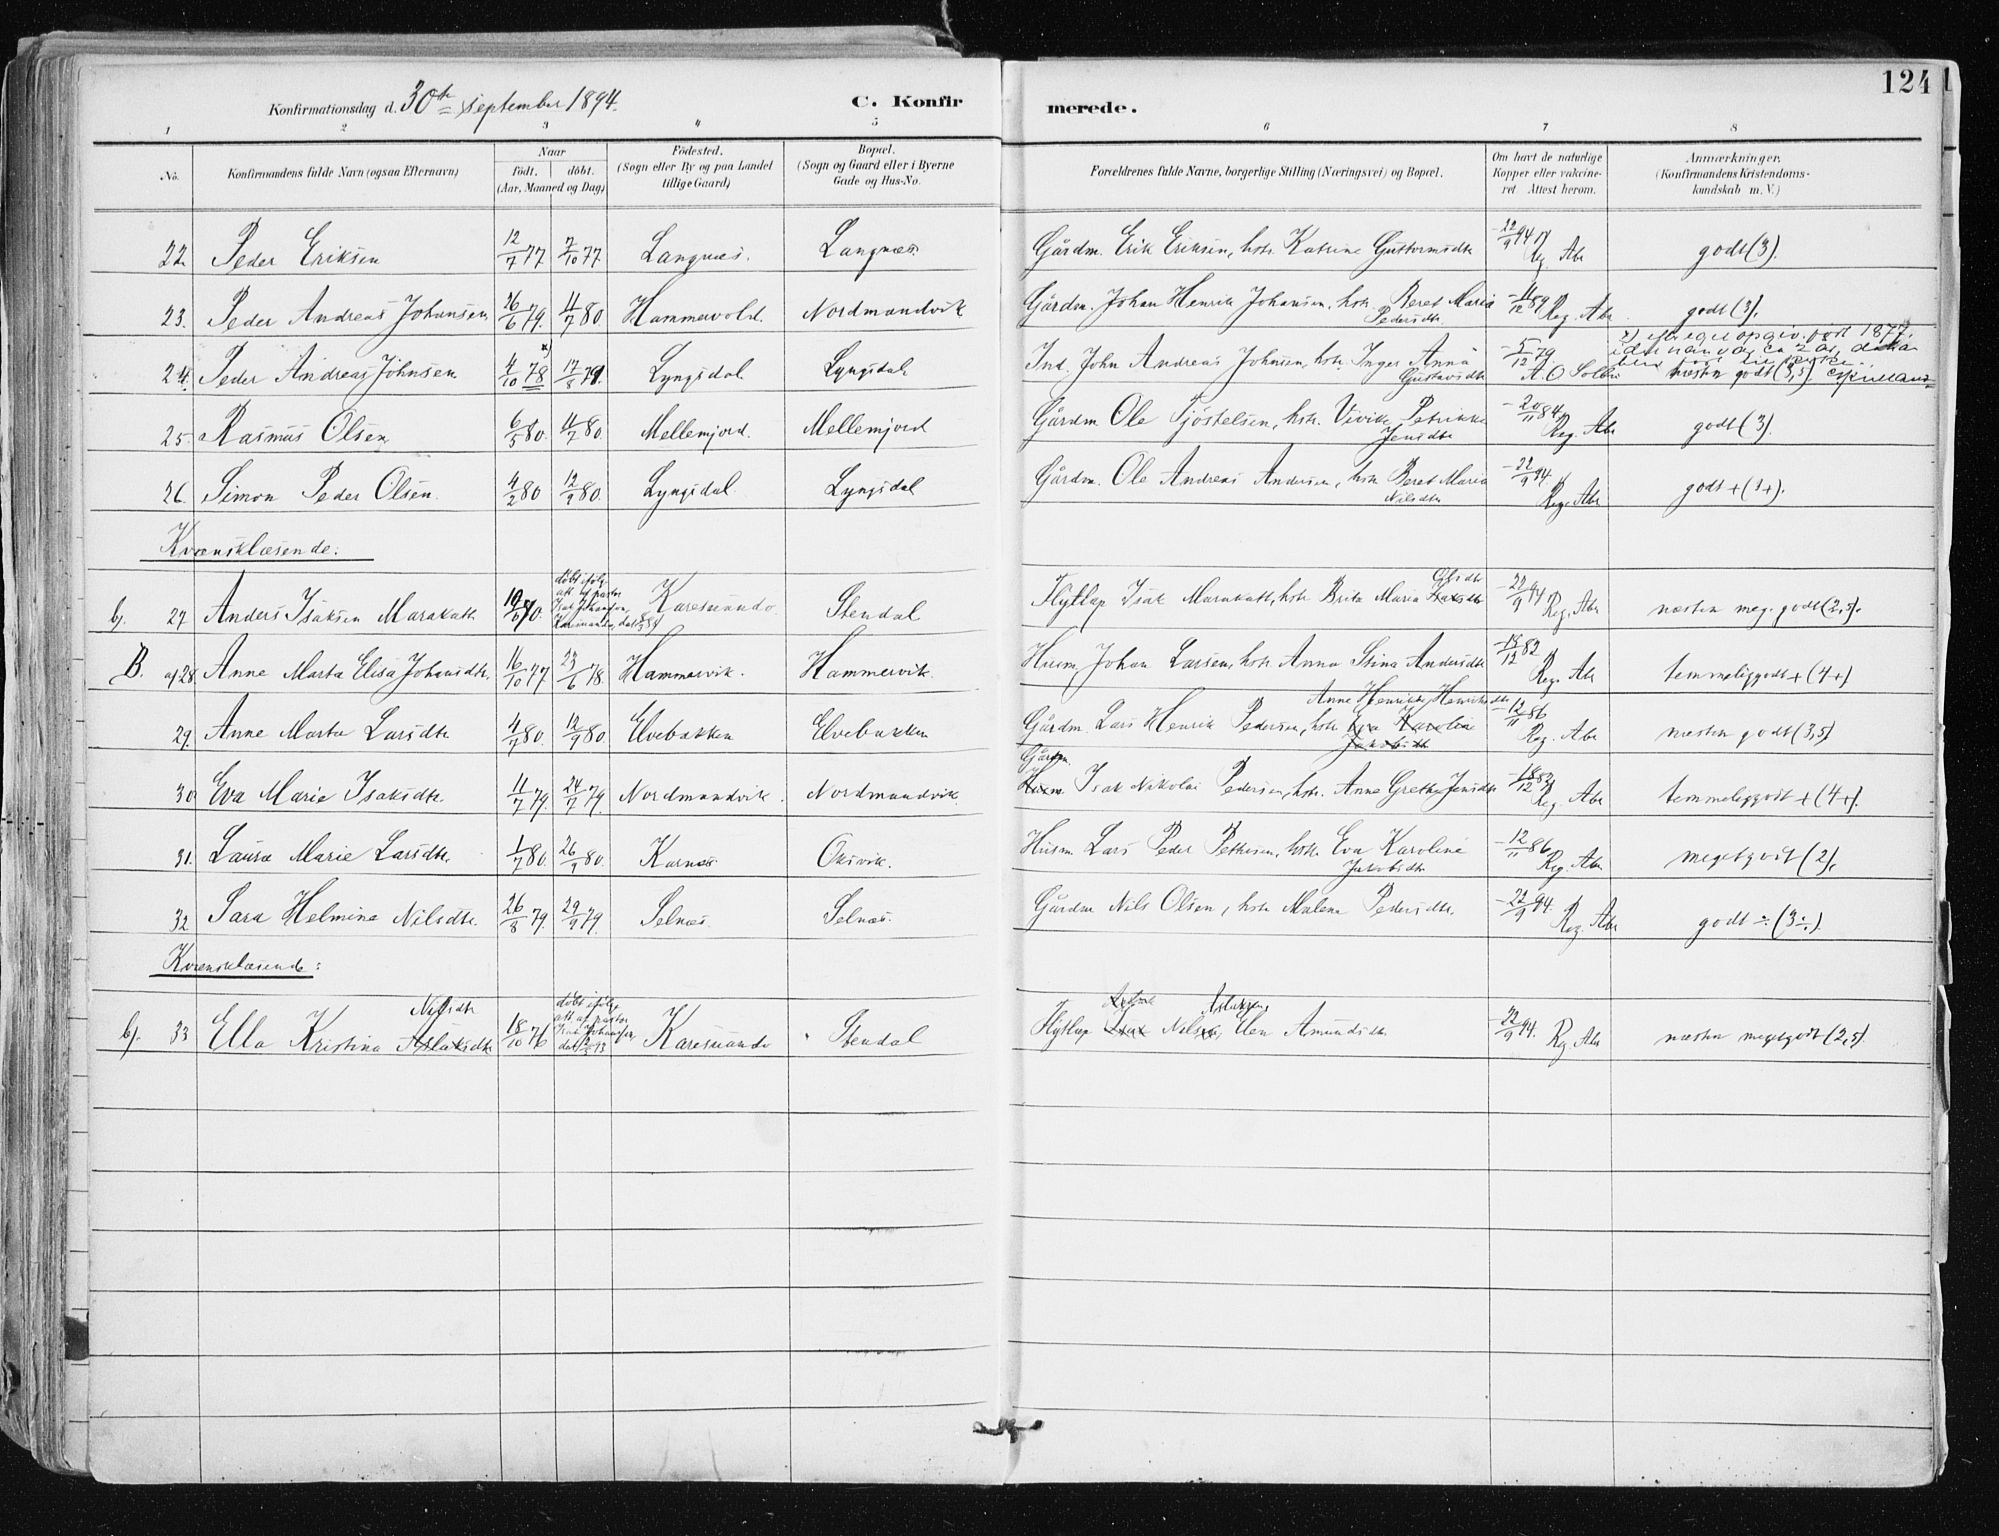 124
Konfirmationsdag d. 30te september 1894.
C. Konfirmerede.
1 2 3 4 5 6 7 8
No. Konfirmandens fulde Navn (ogsaa Efternavn) Naar født. døbt. (Aar, Maaned og Dag) Fødested. (Sogn eller By og paa Landet tillige Gaard) Bopæl. (Sogn og Gaard eller i Byerne Gade og Hus-No. Forældrenes fulde Navne, borgerlige Stilling (Næringsvei) og Bopæl. Om havt de naturlige Kopper eller vakcineret Attest herom. Anmærkninger. (Konfirmandens Kristendomskundskab m. V.)
22. Peder Eriksen 12/7 77 7/10 77 Langnæs. Langnæs. Gårdm. Erik Eriksen, hstr. Katrine Guttormsdtr 22/9 94 Reg. Abr godt (3).
23. Peder Andreas Johansen 26/6 79. 4/7 80 Hammervold. Nordmandvik Gårdm. Johan Henrik Johansen, hstr. Beret Maria Pedersdtr. 4/12 89 Reg. Abr. godt (3).
24. Peder Andreas Johnsen 4/10 78 x) 17/8 79. Lyngsdal Lyngsdal. Ind. John Andreas Johnsen, hstr. Inger Anna Gustavsdtr 5/12 79 A. O. Solbu x) efter egen opgiv. født 1877, næsten godt (3,5).
25. Rasmus Olsen 6/5 80. 4/7 80. Mellemjord. Mellemjord Gårdm Ole Tjöstelsen, hstr. Vivik Petrikke Jensdtr 20/11 84 Reg. Abr godt (3).
26. Simon Peder Olsen. 4/2 80 12/9 80. Lyngsdal. Lyngsdal Gårdm. Ole Andreas Andersen, hstr Beret Maria Nilsdtr 22/9 94. Reg. Abr godt + (3+).
Kvænsklæsende:
b). 27. Anders Isaksen Marakatt 19/10 80. døbt ifølg att af pastor Isak Johansson, Karesuando, dat Karesuando Stendal Flytlap Isak Marakatt, hstr Brita Maria Olsdtr 22/9 94 Reg. Abr næsten meg. godt (2,5).
B. a) 28. Anne Marta Elisa Johansdtr. 16/10 77 23/6 78. Hammervik. Hammervik. Husm. Johan Larsen, hstr Anna Stina Andersdtr 18/12 82 Reg. Abr temmeliggodt + (4+)
29. Anne Marta Larsdtr 4/7 80. 12/9 80. Elvebakken Elvebakken Gårdm. Lars Henrik Pedersen, hstr Eva Karoline Jakobsdtr Anne Henrikke Henriksdtr 12/11 86 Reg. Abr næsten godt (3,5)
30. Eva Marie Isaksdtr. 11/7 79. 24/7 79. Nordmandvik. Nordmandvik. Husm Gårdm. Isak Nikolai Pedersen, hstr. Anne Grethe Jensdtr 18/12 82 Reg. Abr temmeliggodt + (4+).
31. Laura Marie Larsdtr. 1/7 80. 26/9 80. Karnæs Oksvik. Husm Lars Peder Pettersen, hstr. Eva Karoline Jakobsdtr 12/11 86 Reg. Abr megetgodt (2).
32. Sara Helmine Nilsdtr. 26/8 79. 29/9 79 Selnæs. Selnæs. Gårdm Nils Olsen, hstr Malena Pedersdtr. 22/9 94. Reg. Abr godt ÷ (3÷).
Kvænsklæsende:
b). 33 Ella Kristina Aslaksdtr Nilsdtr 18/10 76 døbt ifølg att af pastor Isak Johansson, dat Karesuando Stendal Flytlap Nils Aslaksen, Elen Amundsdtr 22/9 94. Reg. Abr næsten megetgodt (2,5).